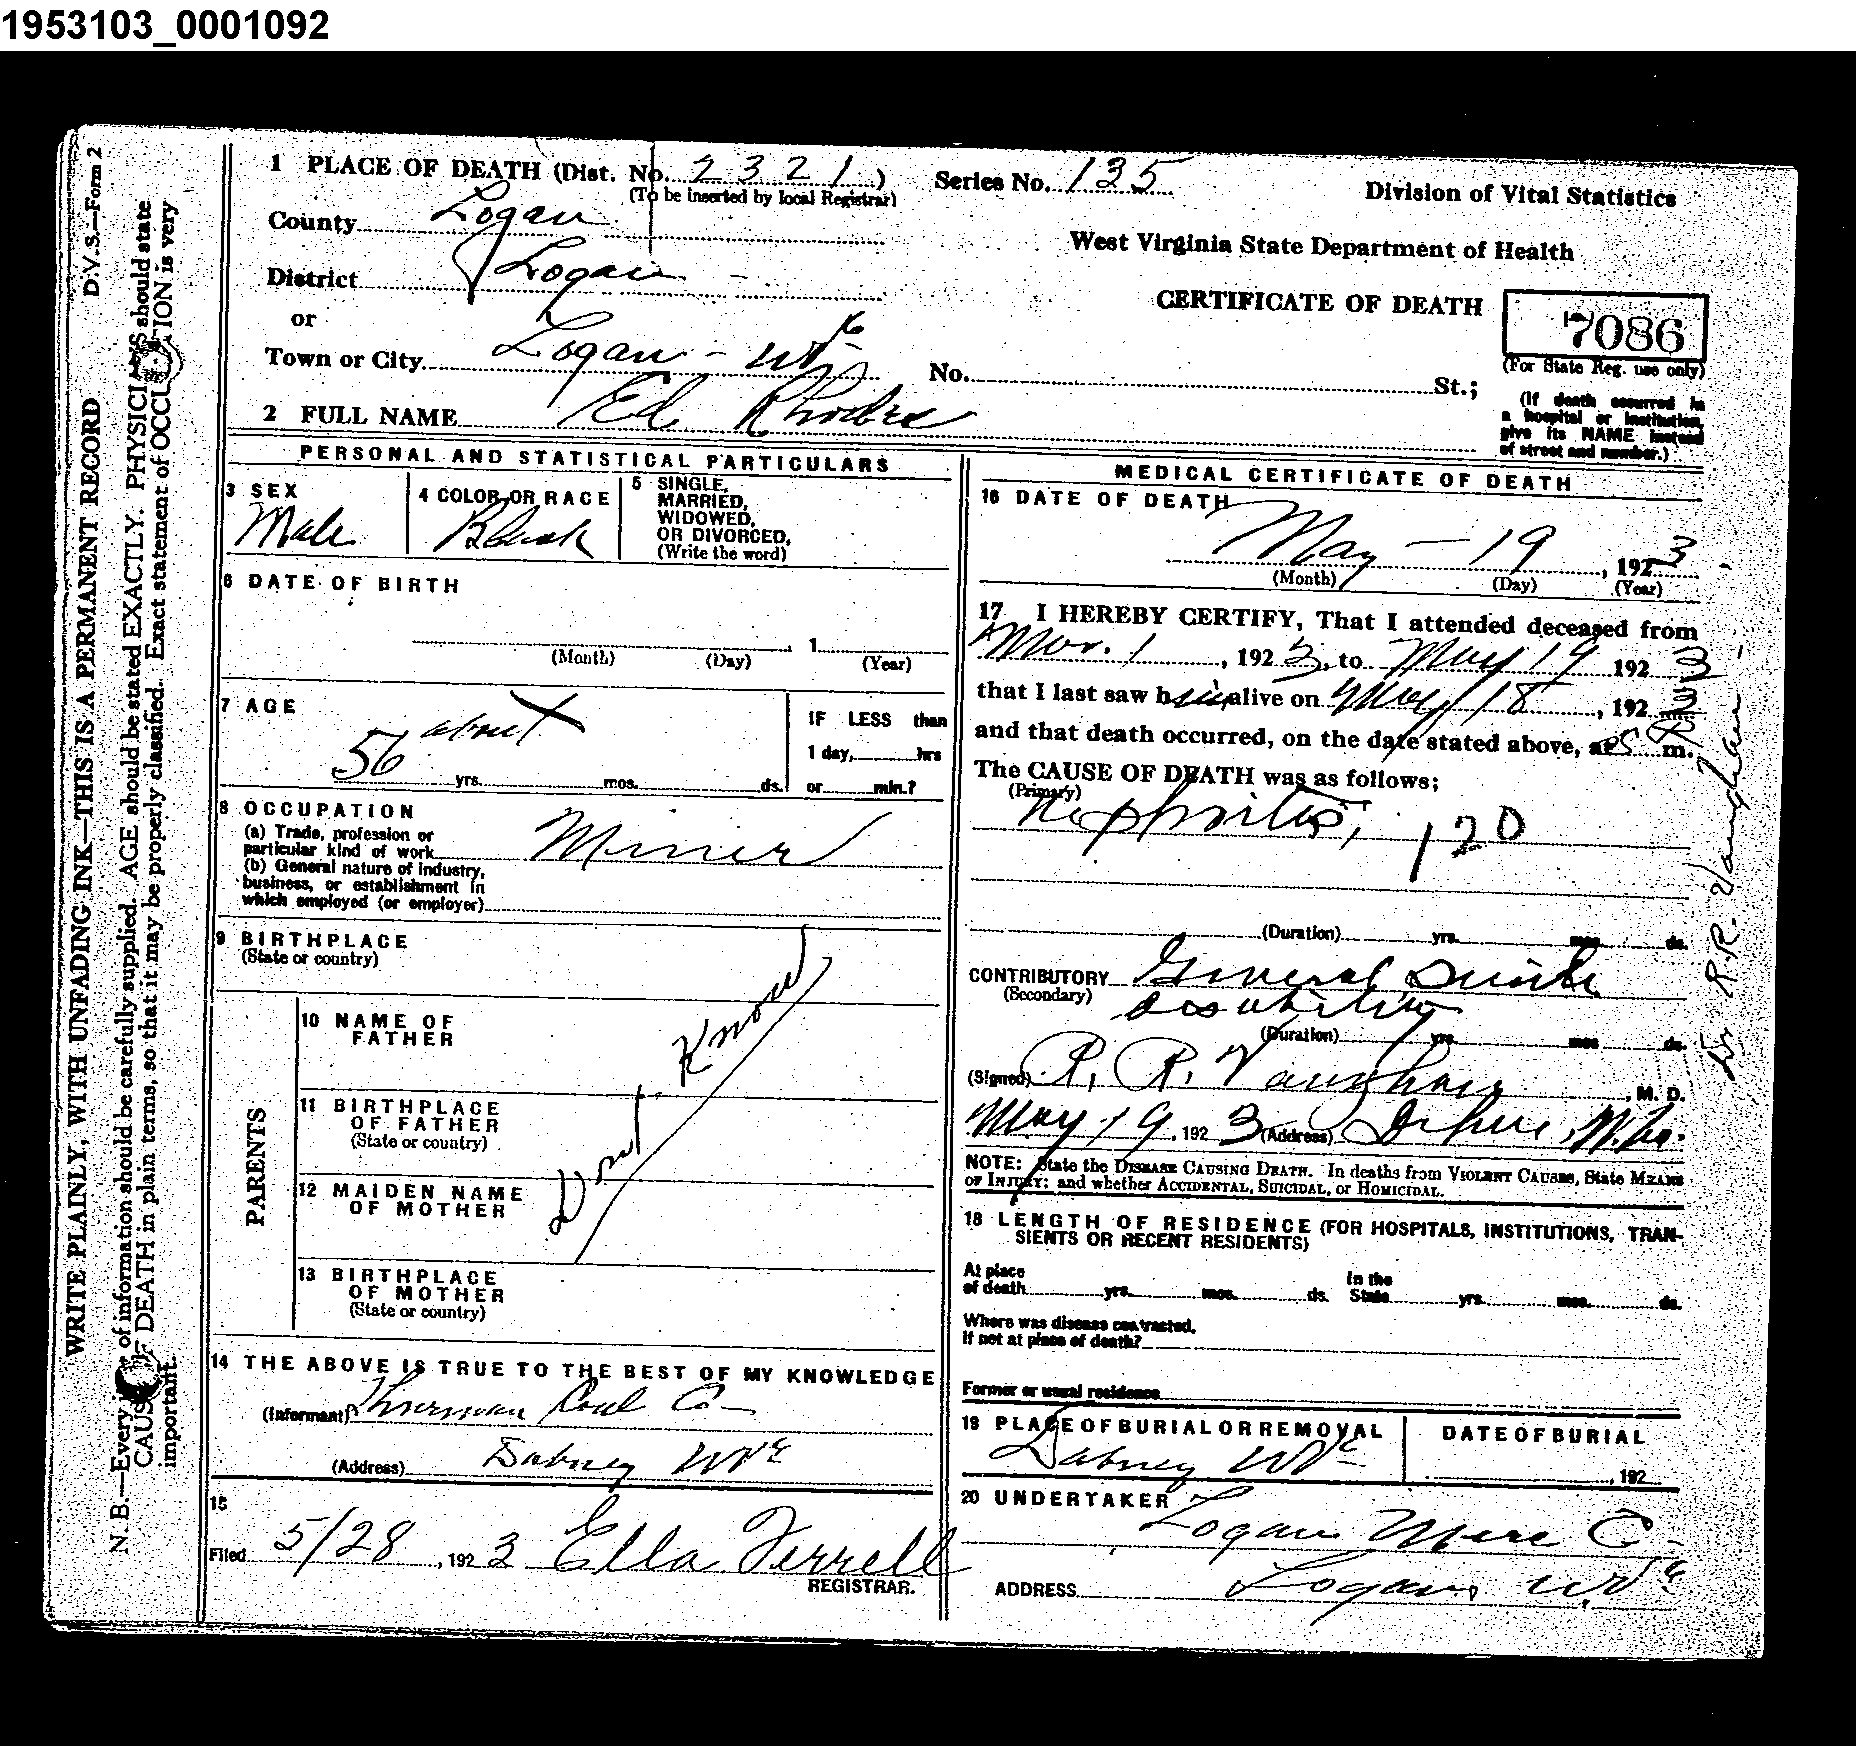 1953103_0001092
D.V.S.—Form 2
WRITE PLAINLY, WITH UNFADING INK—THIS IS A PERMANENT RECORD
N. B.—Every of information should be carefully supplied. AGE should be stated EXACTLY. PHYSICIANS should state
CAUSE DEATH in plain terms, so that it may be properly classified. Exact statement of OCCUPATION is very
important.
1 PLACE OF DEATH (Dist. No. 2321) Series No. 135
(To be inserted by local Registrar)
Division of Vital Statistics
County Logan
West Virginia State Department of Health
District Logan
CERTIFICATE OF DEATH
7086
(For State Reg. use only)
or
Town or City Logan - WVa No. St.;
(If death occurred in
a hospital or institution,
give its NAME instead
of street and number.)
2 FULL NAME Ed Rhodes
PERSONAL AND STATISTICAL PARTICULARS
3 SEX Male
4 COLOR OR RACE Black
5 SINGLE,
MARRIED,
WIDOWED,
OR DIVORCED,
(Write the word)
6 DATE OF BIRTH
1
(Month) (Day) (Year)
7 AGE
about
56 yrs. mos. ds.
IF LESS than
1 day, hrs
or min.?
8 OCCUPATION
(a) Trade, profession or
particular kind of work Miner
(b) General nature of industry,
business, or establishment in
which employed (or employer)
9 BIRTHPLACE
(State or country)
PARENTS
10 NAME OF
FATHER
11 BIRTHPLACE
OF FATHER
(State or country)
12 MAIDEN NAME
OF MOTHER
13 BIRTHPLACE
OF MOTHER
(State or country)
Dont Know
14 THE ABOVE IS TRUE TO THE BEST OF MY KNOWLEDGE
(Informant) Thurman Coal Co
(Address) Dabney WVa
15
Filed 5/28, 1923 Ella Ferrell
REGISTRAR.
MEDICAL CERTIFICATE OF DEATH
16 DATE OF DEATH
May - 19, 1923
(Month) (Day) (Year)
17 I HEREBY CERTIFY, That I attended deceased from
Mar. 1, 1923, to May 19 1923
that I last saw him alive on May 18, 1923
and that death occurred, on the date stated above, at 5 P m.
The CAUSE OF DEATH was as follows;
(Primary)
Nephritis, 120
(Duration) yrs. mos. ds.
CONTRIBUTORY General
(Secondary)
(Duration) yrs. mos. ds.
(Signed) R. R. Vaughan, M. D.
May 19, 1923 (Address)
NOTE: State the DISEASE CAUSING DEATH. In deaths from VIOLENT CAUSES, State MEANS
OF INJURY; and whether ACCIDENTAL, SUICIDAL, or HOMICIDAL.
18 LENGTH OF RESIDENCE (FOR HOSPITALS, INSTITUTIONS, TRAN-
SIENTS OR RECENT RESIDENTS)
At place
of death yrs. mos. ds.
In the
State yrs. mos. ds.
Where was disease contracted,
if not at place of death?
Former or usual residence
19 PLACE OF BURIAL OR REMOVAL
Dabney WVa
DATE OF BURIAL
, 192
20 UNDERTAKER
Logan Merc Co
ADDRESS Logan WVa
Dr R.R. Vaughan